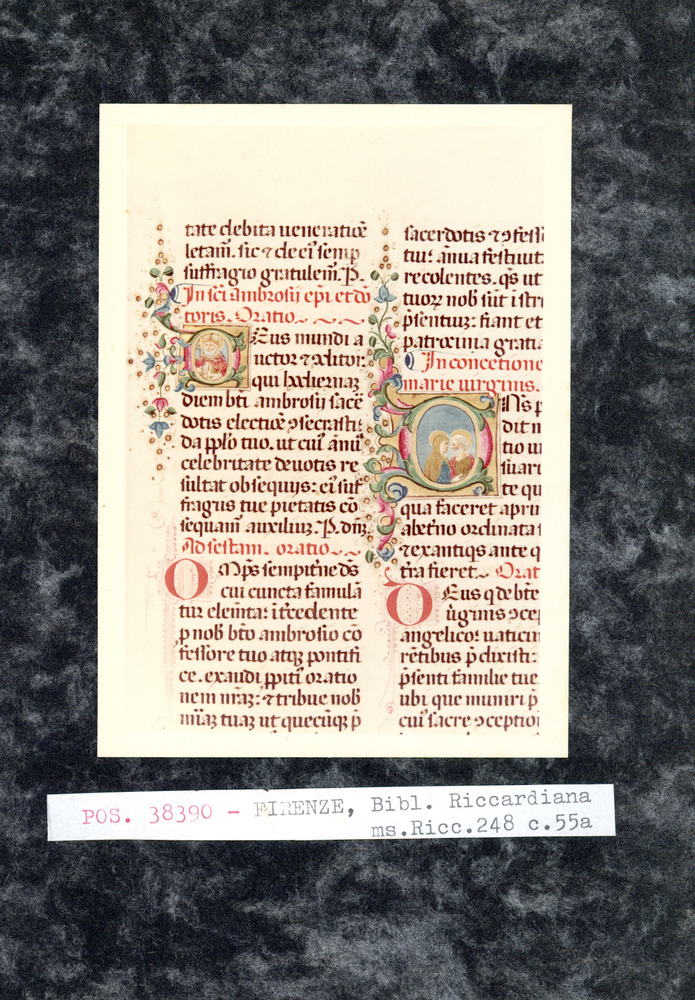 tate debita ueneratiōe
letam̄. sic ⁊ de ei᷒ semp
suffragio gratulem̄. P.
In sc̄i ambrosij ep̄i et do
toris. Oratio
Eus mundi a
uctor ⁊ ↄditor:
qui hodiernaꝫ
diem bt̄i ambrosij sace
dotis electiōe ↄsecrasti:
da pplo tuo. ut cui᷒ ānua
celebritate deuotis re
sultat obsequijs: ei᷒ suf
fragijs tue pietatis cō
sequam̄ auxiliuꝫ. P. dn̄ꝫ
Ad sextam. oratio
Mps sempit̄ne ds̄
cui cuncta famulā
tur elem̄ta: ītercedente
ꝓ nob̄ bt̄o ambrosio cō
fessore tuo atqꝫ pontifi
ce. exaudi ppiti᷒ oratio
nem nr̄aꝫ: ⁊ tribue nob̄
mīaꝫ tuaꝫ ut quecūqꝫ p̄
sacerdotis ⁊ ↄfess
tui: ānua festiuit
recolentes. qs̄ ut
tuoꝝ nob̄ sīt īstr
p̄sentiuꝫ: fiant et
patrocinia gratia
In concetione
marie uirginis.
Ns p
dit n
tio ui
suari
te qu
qua faceret apru
abet̄no ordinata
⁊ ex antiqs ante q
tr̄a fieret. Orat
Eus q de bt̄e
ūginis ↄcep
angelico: uaticin
rētibus p̄dixisti:
p̄senti familie tue
ubi que muniri p̄
cui᷒ sacre ↄceptioi
POS. 38390 - FIRENZE, Bibl. Riccardiana
ms.Ricc.248 c.55a